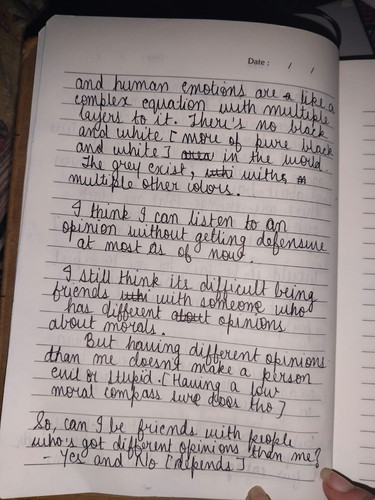 Date : / /
and human emotions are like a
complex equation with multiple
layers to it. There's no black
and white [more of pure black
and white] in the world.
The grey exist, with
multiple other colors.
I think I can listen to an
opinion without getting defensive
at most as of now.
I still think its difficult being
friends with someone who
has different opinions
about morals.
But having different opinions
than me doesn't make a person
evil or stupid. [Having a low
moral compass sure does tho]
So, can I be friends with people
who's got different opinions than me?
- Yes and No [depends]